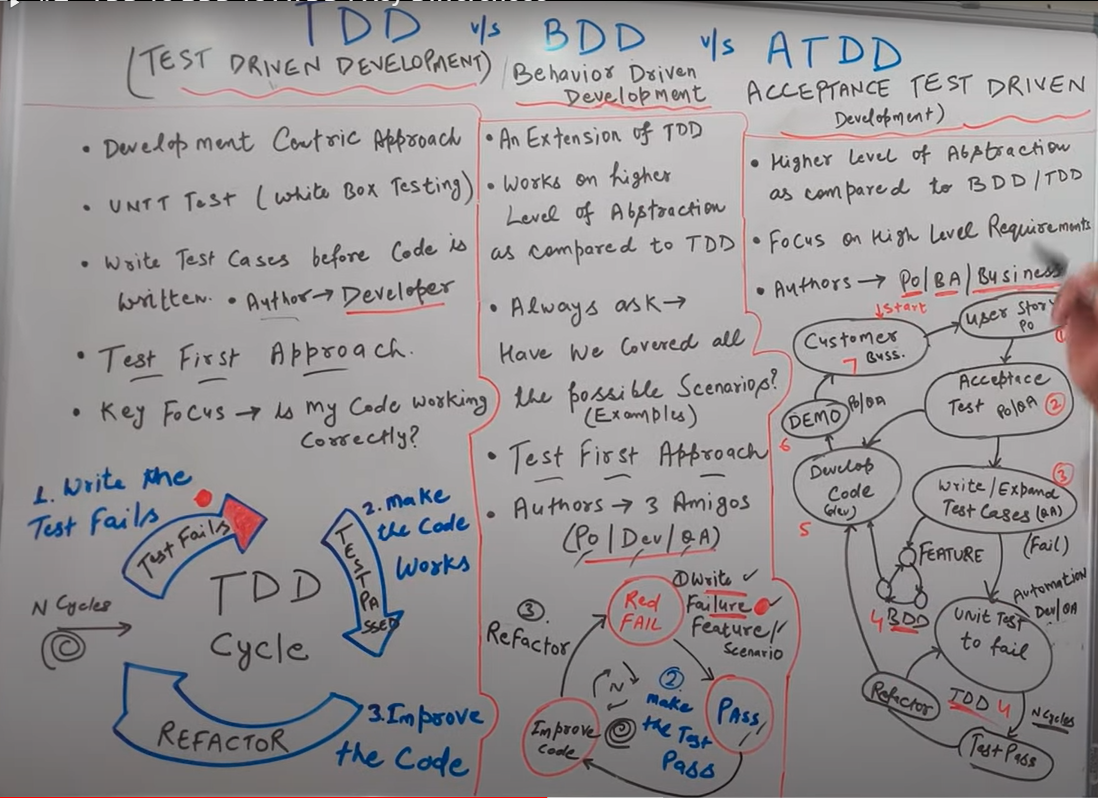 TDD v/s BDD v/s ATDD
(TEST DRIVEN DEVELOPMENT)
• Development Centric Approach
• UNIT Test (White Box Testing)
• Write Test Cases before Code is
written. • Author → Developer
• Test First Approach.
• Key Focus → is My Code working
correctly?
1. Write the
Test Fails
Test Fails
2. Make
the Code
Works
TEST PASSED
N Cycles
TDD
Cycle
REFACTOR
3. Improve
the Code
Behavior Driven
Development
• An Extension of TDD
• Works on higher
Level of Abstraction
as compared to TDD
• Always ask →
Have We Covered all
the possible Scenarios?
(Examples)
• Test First Approach
• Authors → 3 Amigos
(Po/Dev/QA)
① Write ✓
Failure ✓
Feature/
Scenario
Red
FAIL
③.
Refactor
N
②
make
the Test
Pass
PASS
Improve
code
ACCEPTANCE TEST DRIVEN
Development)
• Higher Level of Abstraction
as compared to BDD/TDD
• Focus on High Level Requirements
• Authors → Po/BA/Business
↓Start
Customer
7 Buss.
User Story
Po
①
Acceptace
Test Po/QA ②
DEMO Po/QA
6
Develop
Code
(dev)
5
③
Write/Expand
Test Cases (QA)
(Fail)
FEATURE
4 BDD
Automation
Dev/QA
UNIT TEST
to fail
Refactor
TDD 4
N Cycles
Test Pass